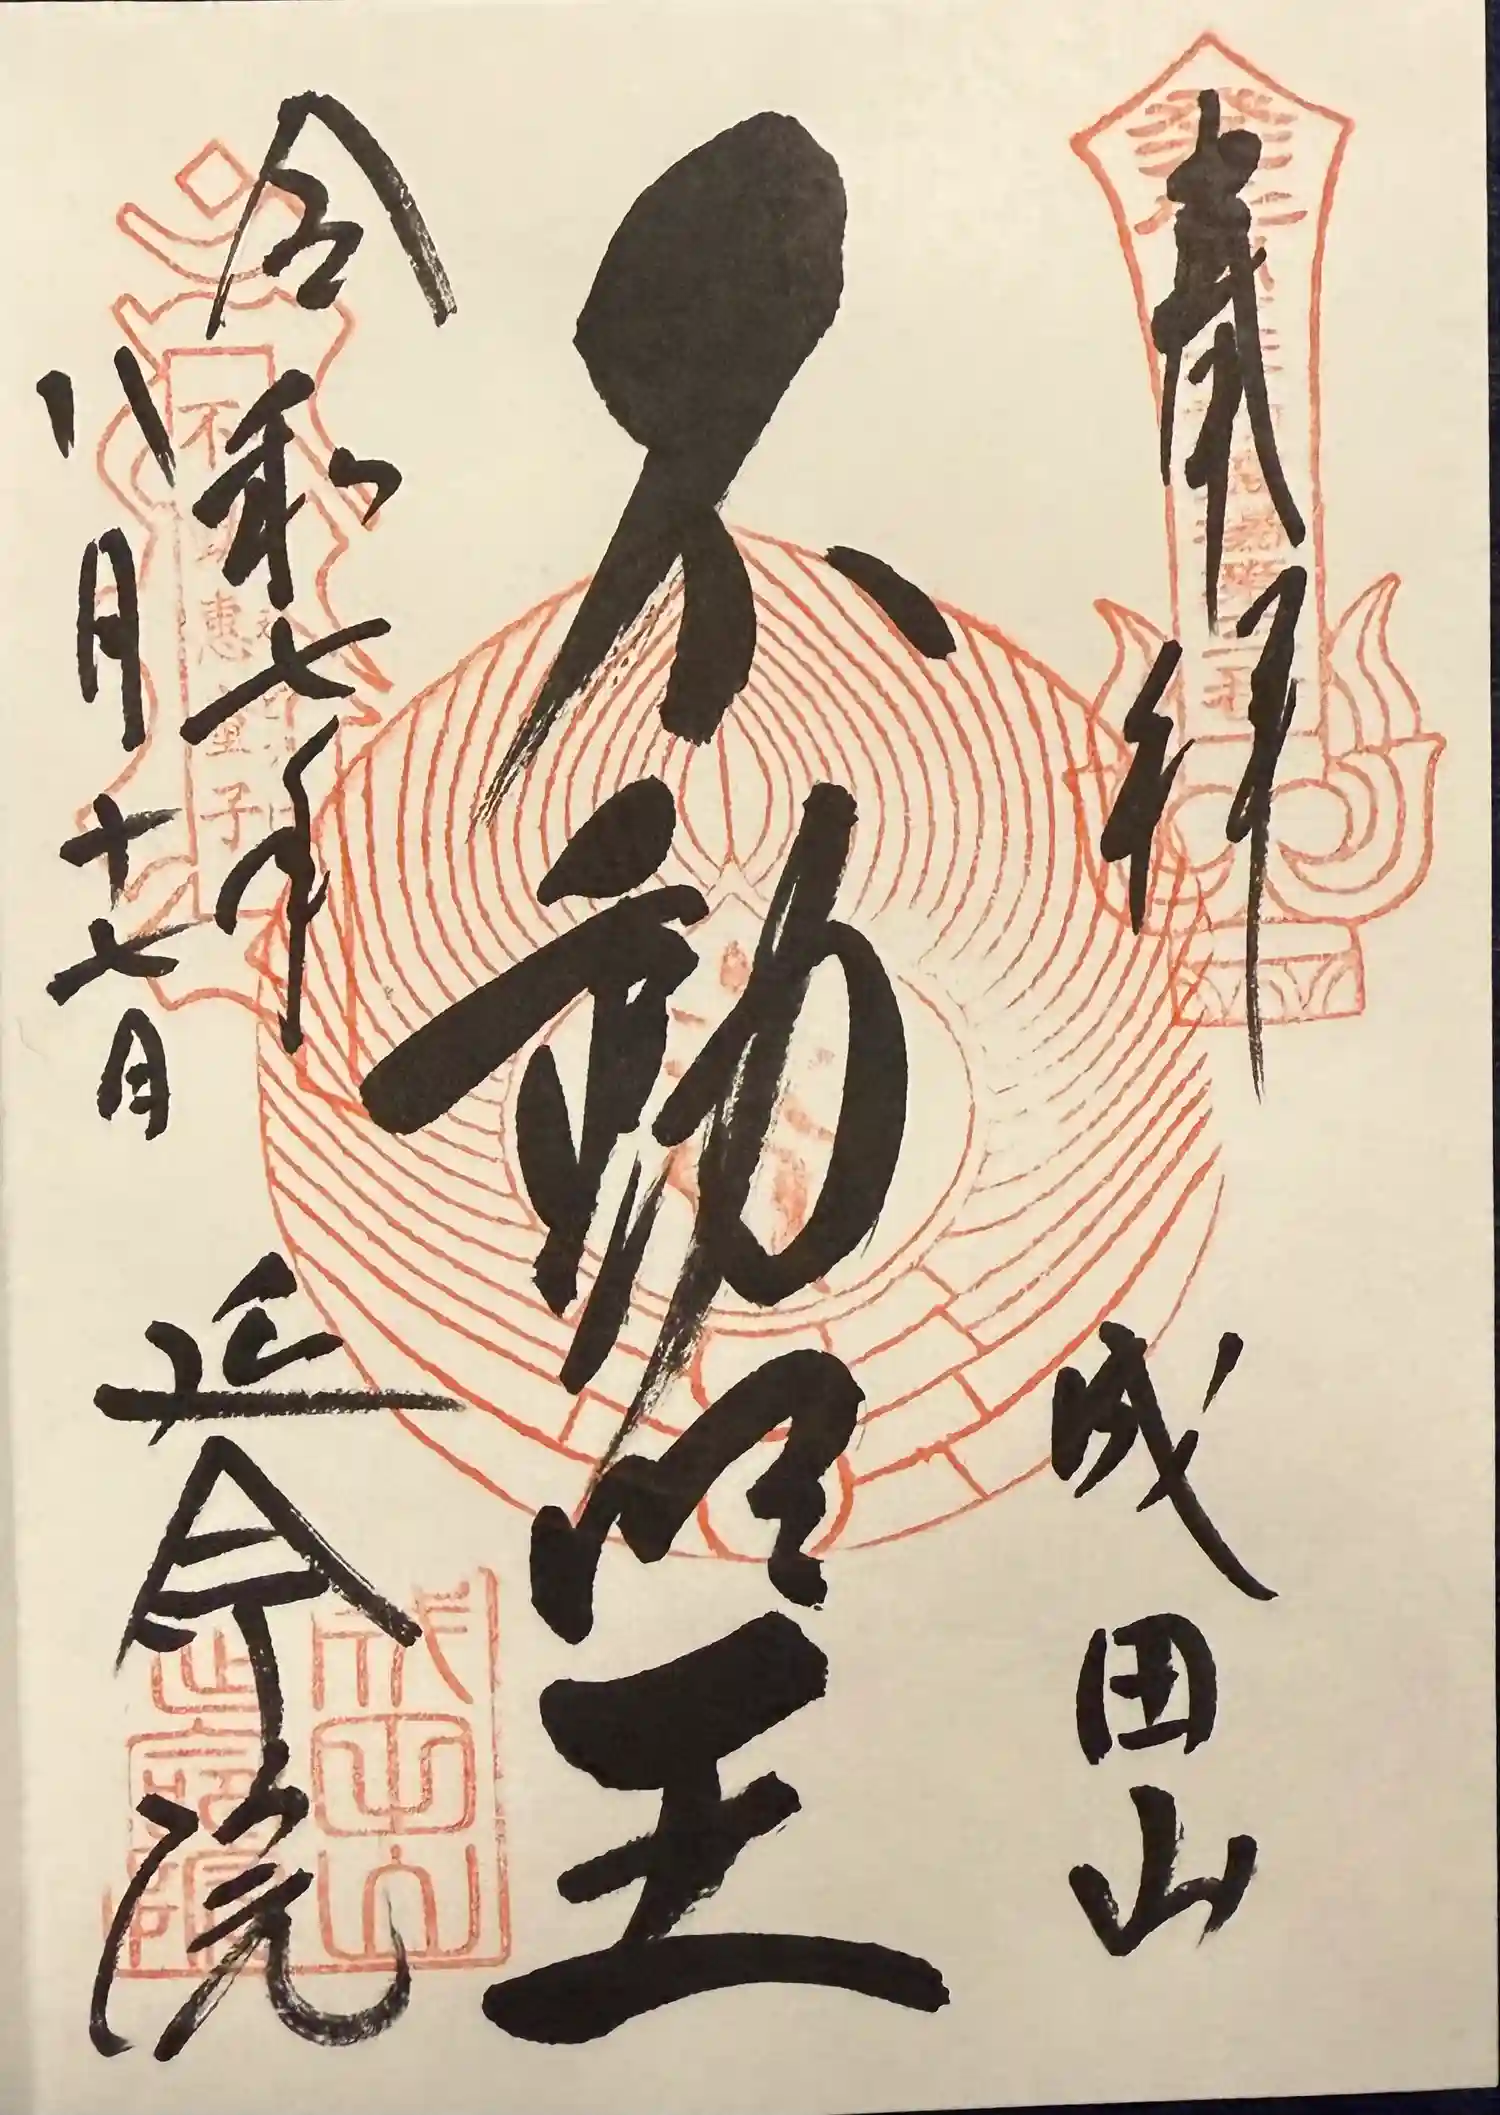 奉拝
成田山
不動明王
令和七年
八月十七日
延命院
不動
恵童子
成田山
延命院